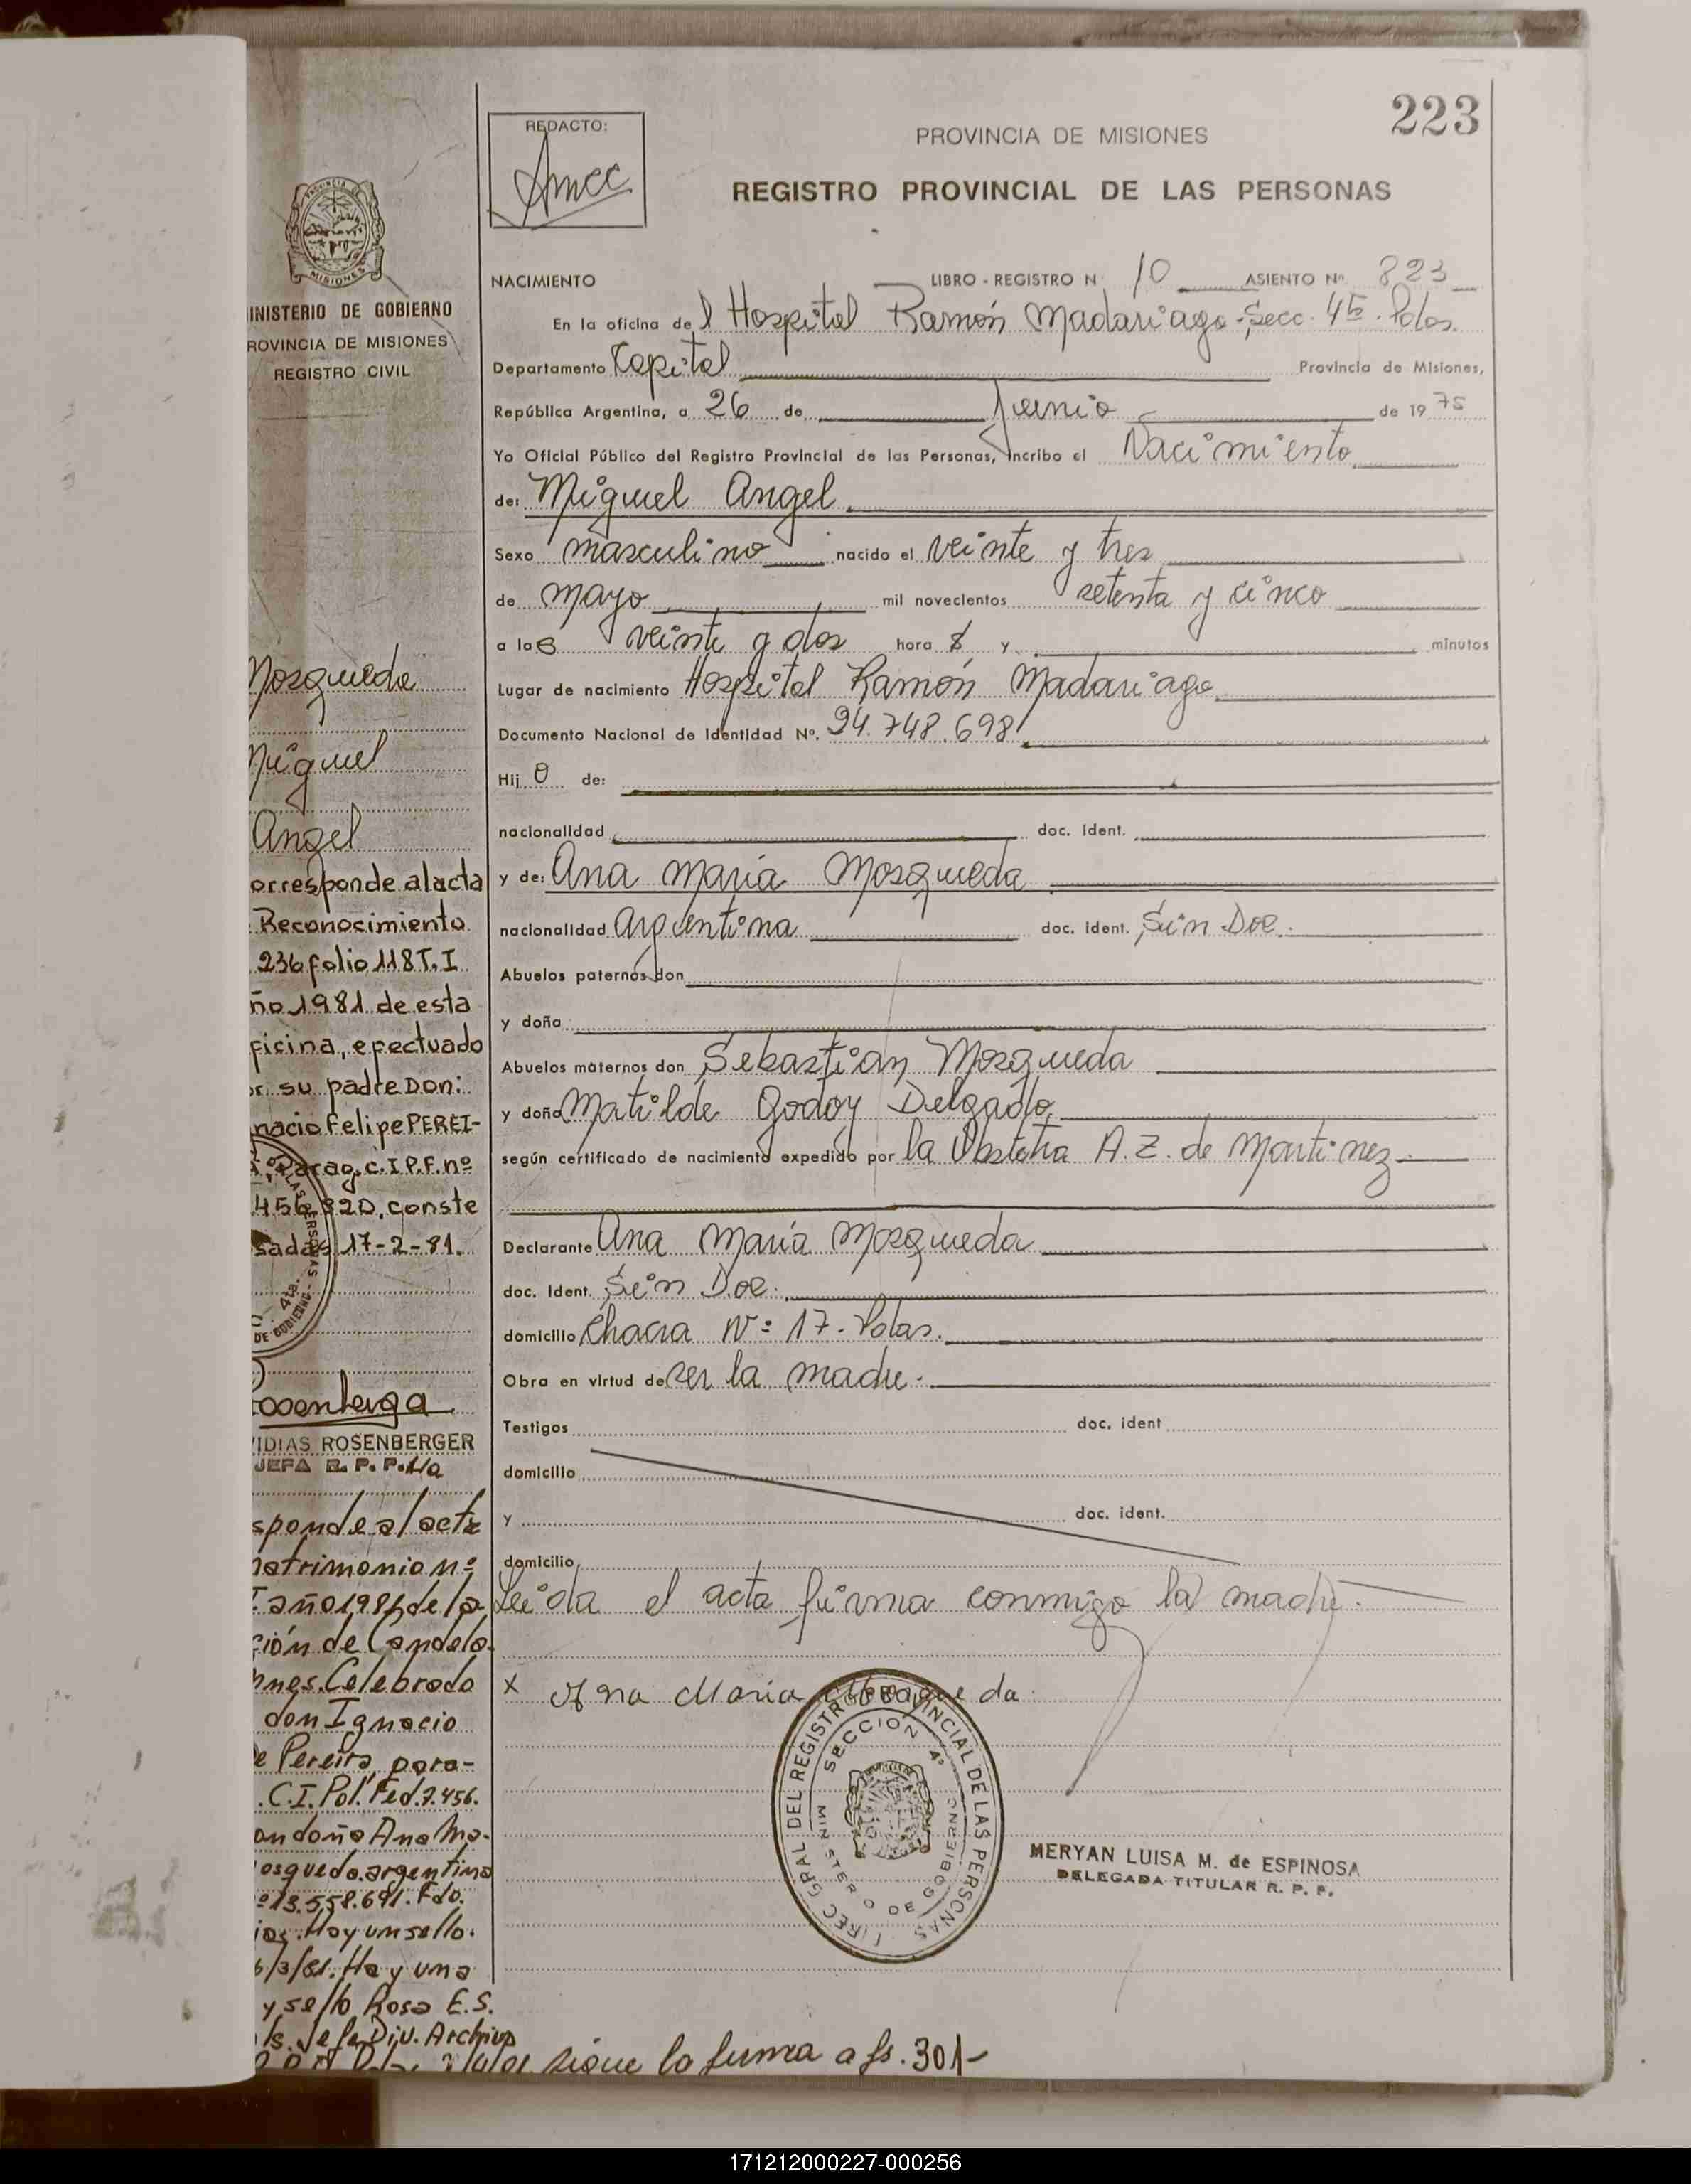 223
REDACTO:
PROVINCIA DE MISIONES
REGISTRO PROVINCIAL DE LAS PERSONAS
MISIONES
INISTERIO DE GOBIERNO
ROVINCIA DE MISIONES
REGISTRO CIVIL
NACIMIENTO LIBRO - REGISTRO N 10 ASIENTO Nº. 823
En la oficina de l Hospital Ramón Madariaga - Secc. 4ta. Pdas.
Departamento Capital Provincia de Misiones,
República Argentina, a 26 de junio de 1975
Yo Oficial Público del Registro Provincial de las Personas, incribo el Nacimiento
de: Miguel Angel
Sexo masculino nacido el veinte y tres
de mayo mil novecientos setenta y cinco
a las veinte y dos hora s y minutos
Lugar de nacimiento Hospital Ramón Madariaga
Documento Nacional de Identidad Nº. 24.748.698
Hij o de:
nacionalidad doc. ident.
y de: Ana María Mosqueda
nacionalidad argentina doc. ident. Sin Doc.
Abuelos paternos don
y doña
Abuelos maternos don Sebastián Mosqueda
y doña Matilde Godoy Delgado
según certificado de nacimiento expedido por la Obstetra A. Z. de Martinez
Declarante Ana María Mosqueda
doc. ident. Sin Doc.
domicilio Chacra Nº 17 - Pdas.
Obra en virtud de ser la madre.
Testigos doc. ident
domicilio
y doc. ident.
domicilio
Leida el acta firma conmigo la madre.
x Ana Maria Mosqueda
DIREC. GRAL. DEL REGISTRO PROVINCIAL DE LAS PERSONAS
SECCION 4ª
MINISTERIO DE GOBIERNO
MERYAN LUISA M. de ESPINOSA
DELEGADA TITULAR R. P. P.
Mosqueda
Miguel
Angel
orresponde al acta
Reconocimiento
236 folio 118 T. I
ño 1981 de esta
ficina, efectuado
or su padre Don:
nacio Felipe PEREI-
parag. C.I.P.F. nº
456.320, conste
sadas 17-2-81.
4ta.
DE GOBIERNO
IDIAS ROSENBERGER
JEFA R. P. P. 4ta
sponde al acta
matrimonio nº
T. año 1981 de la
ción de Candela
nes. Celebrado
don Ignacio
e Pereira, para-
. C.I. Pol. Fed. 7.456.
on doña Ana Ma-
osqueda argentina
º 13.558.691. Fdo.
Hay un sello.
6/3/81. Hay una
y sello Rosa E. S.
Jefe Div. Archivo
sigue la firma a fs. 301-
171212000227-000256